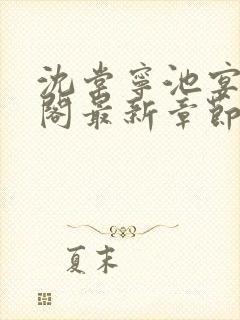 沈棠宁池宴
阁最新章节
夏末